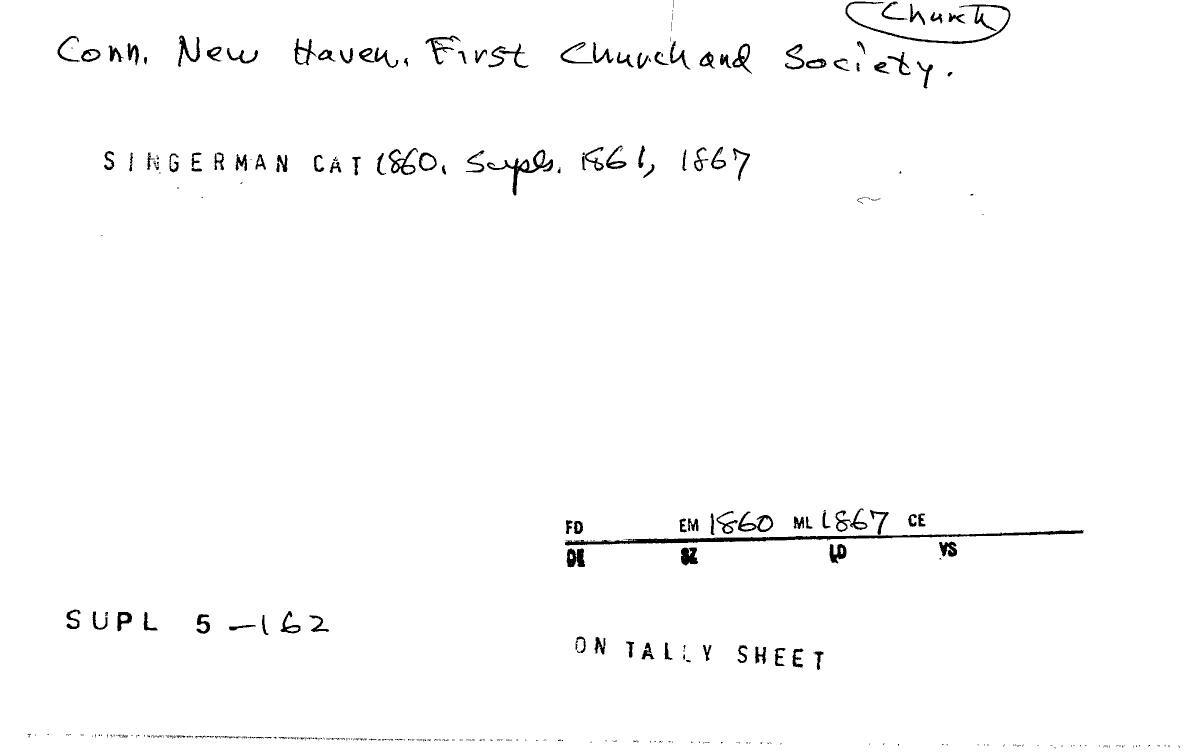 Church
Conn. New Haven. First Church and Society.
SINGERMAN CAT 1860. Supls. 1861, 1867
FD EM 1860 ML 1867 CE
DE SZ LD VS
SUPL 5 —162
ON TALLY SHEET